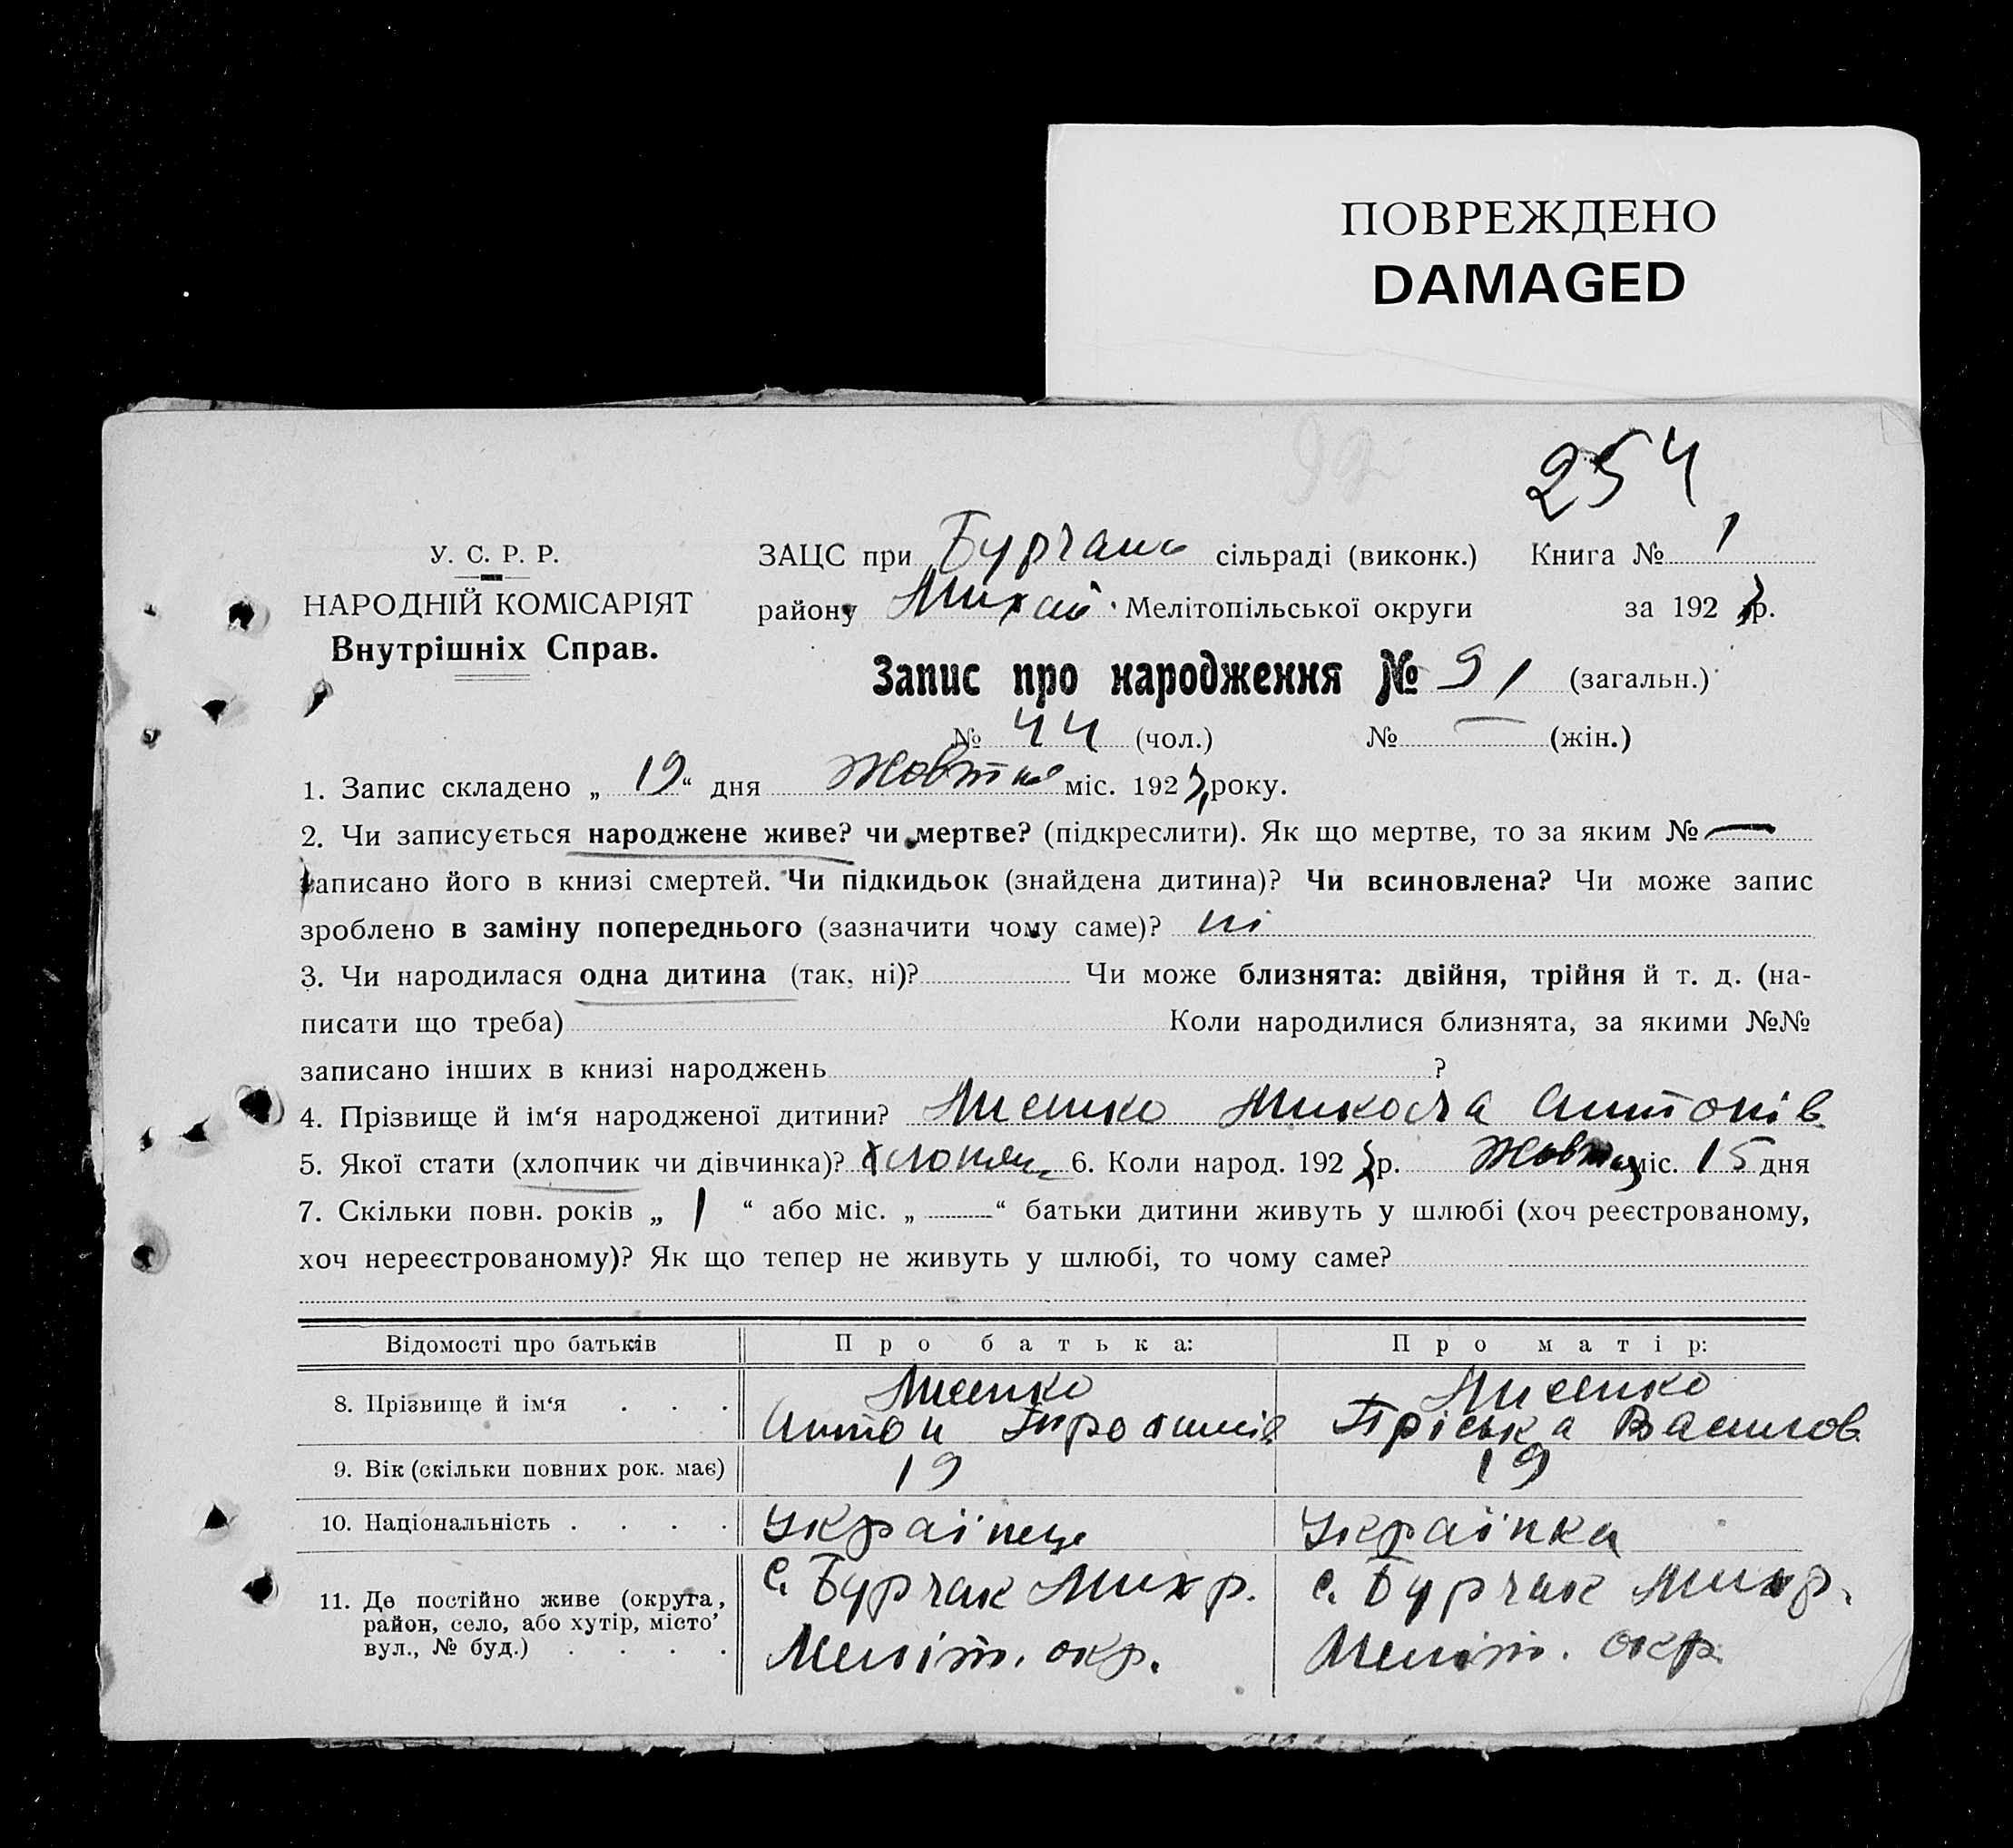 ПОВРЕЖДЕНО
DAMAGED
254
У. С. Р. Р.
НАРОДНІЙ КОМІСАРІЯТ
Внутрішніх Справ.
ЗАЦС при Бурчанс сільраді (виконк.) Книга № 1
району Михай. Мелітопільської округи за 192 р.
Запис про народження № 91 (загальн.)
№ 44 (чол.) № — (жін.)
1. Запис складено „ 19 “ дня Жовтня міс. 192 року.
2. Чи записується народжене живе? чи мертве? (підкреслити). Як що мертве, то за яким № —
записано його в книзі смертей. Чи підкидьок (знайдена дитина)? Чи всиновлена? Чи може запис
зроблено в заміну попереднього (зазначити чому саме)? ні
3. Чи народилася одна дитина (так, ні)? Чи може близнята: двійня, трійня й т. д. (на-
писати що треба) Коли народилися близнята, за якими №№
записано інших в книзі народжень ?
4. Прізвище й ім‘я народженої дитини? Микола Антонів
5. Якої стати (хлопчик чи дівчинка)? 6. Коли народ. 192 р. міс. 15 дня
7. Скільки повн. років „ 1 “ або міс. „ — “ батьки дитини живуть у шлюбі (хоч реєстрованому,
хоч нереєстрованому)? Як що тепер не живуть у шлюбі, то чому саме?
Відомості про батьків Про батька: Про матір:
8. Прізвище й ім‘я . . . Антон Пріська Васильов
9. Вік (скільки повних рок. має) 19 19
10. Національність . . . . Українець Українка
11. Де постійно живе (округа, район, село, або хутір, місто’ вул., № буд.) . . . . с. Бурчак Мих р. Меліт. окр. с. Бурчак Мих р. Меліт. окр.